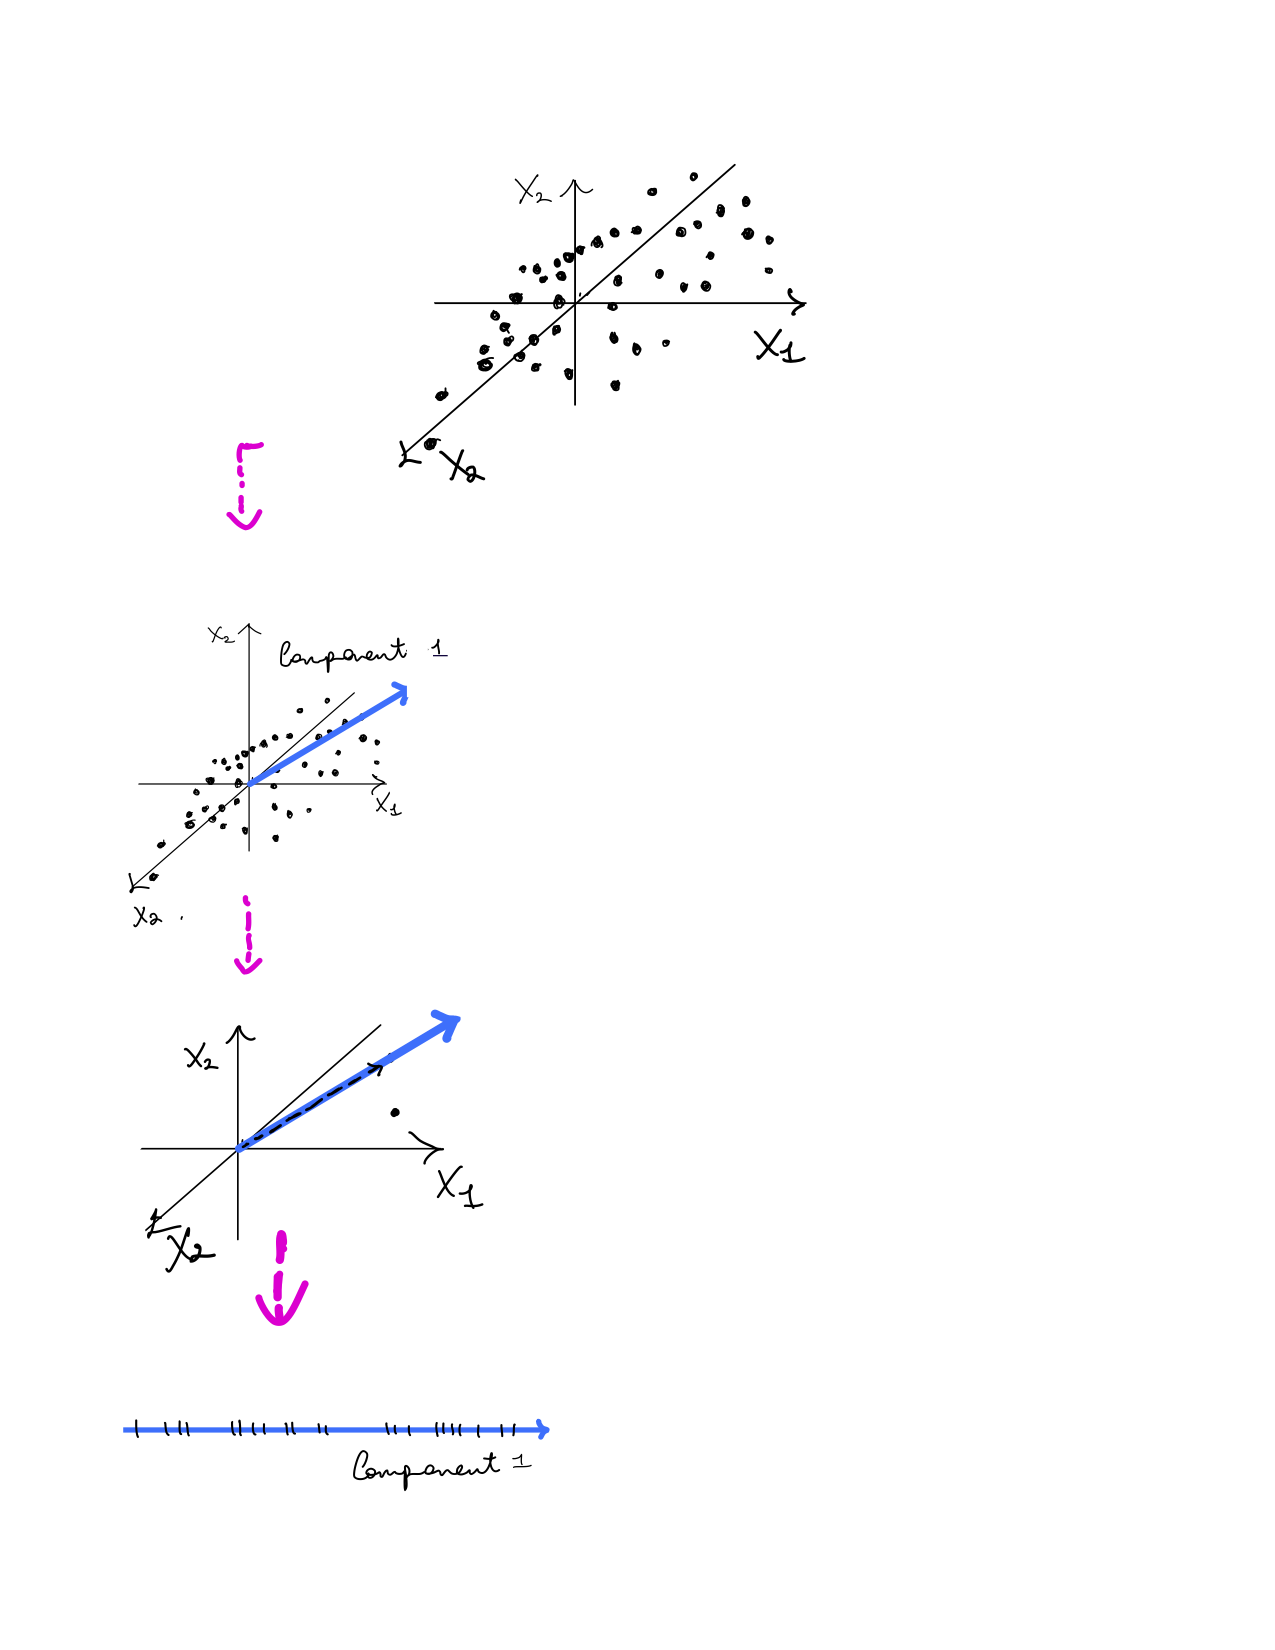 X2
X1
X2
X2
Component 1
X1
X2
X2
X1
X2
Component 1